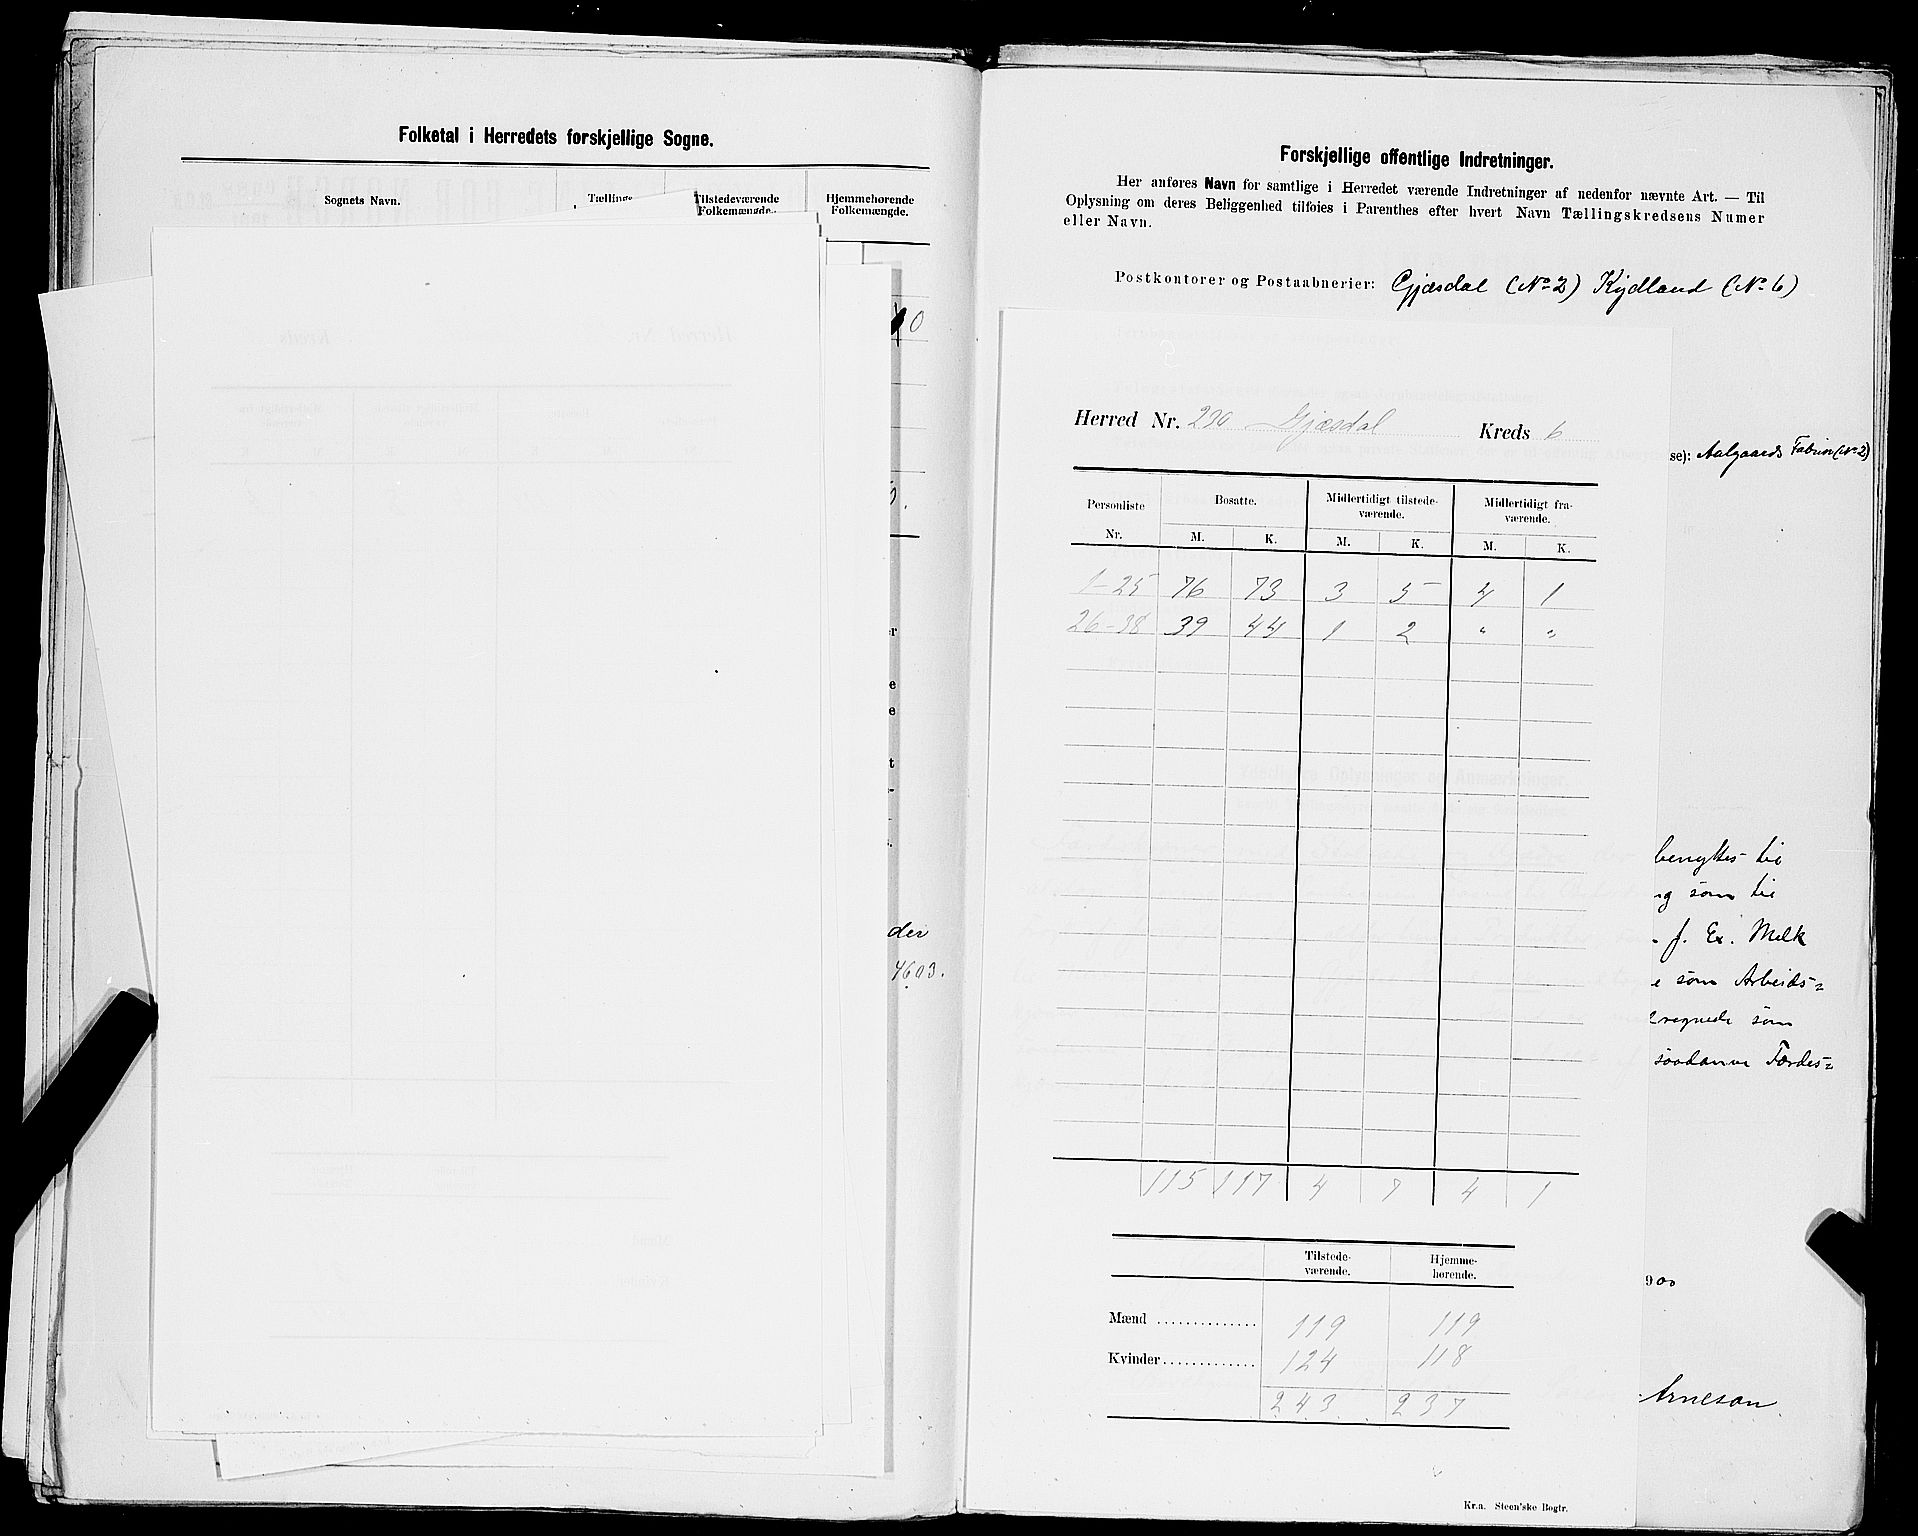 Folketal i Herredets forskjellige Sogne.
Sognets Navn.
Tællings
Tilstedeværende Folkemængde.
Hjemmehørende Folkemængde.
der
4603.
Forskjellige offentlige Indretninger.
Her anføres Navn for samtlige i Herredet værende Indretninger af nedenfor nævnte Art. — Til
Oplysning om deres Beliggenhed tilføies i Parenthes efter hvert Navn Tællingskredsens Numer
eller Navn.
Postkontorer og Postaabnerier: Gjæsdal (No 2) Kydland (No 6)
se): Aalgaards Fabrik (No 2)
Herred Nr. 230 Gjæsdal Kreds 6
Personliste Nr. Bosatte. Midlertidigt tilstede-værende. Midlertidigt fra-værende.
M. K. M. K. M. K.
1-25 76 73 3 5 4 1
26-38 39 44 1 2 " "
115 117 4 7 4 1
Tilstede-værende. Hjemme-hørende.
Mænd .............. 119 119
Kvinder............. 124 118
243 237
Kr.a. Steen'ske Bogtr.
benyttes til
som til
f. Ex. Melk
som Arbeids=
regnede som
saadanne Færdes=
900
Arneson